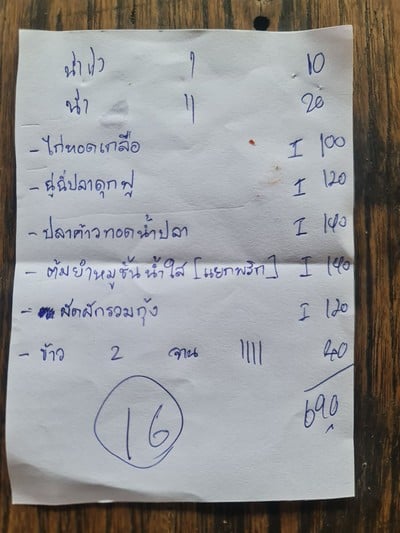 น้ำแข็ง 1 10
น้ำ 11 20
- ไก่ทอดเกลือ I 100
- ฉู่ฉี่ปลาดุกฟู I 120
- ปลาค้าวทอดน้ำปลา I 140
- ต้มยำหมูชิ้นน้ำใส [แยกพริก] I 140
- ผัดผักรวมกุ้ง I 120
- ข้าว 2 จาน |||| 40
690
16